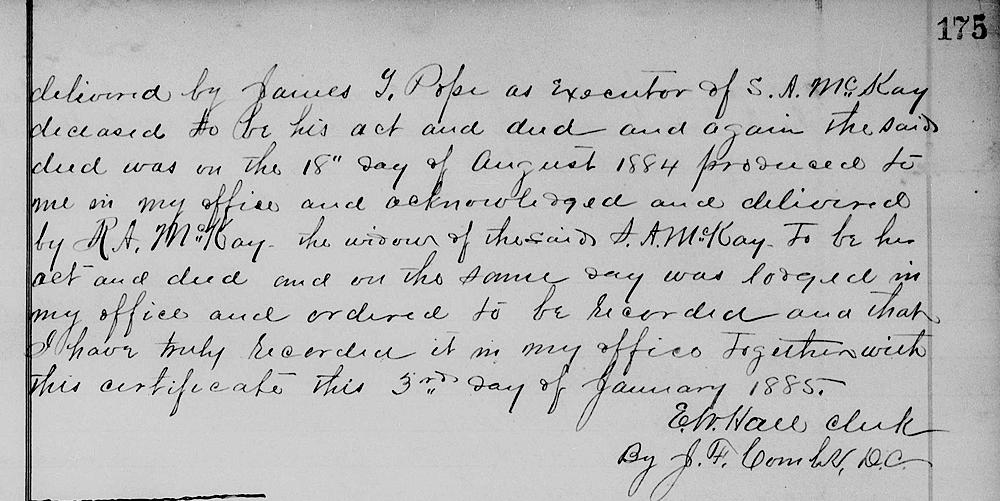 175
delivered by James G. Pope as Executor of S. A. McKay
deceased to be his act and deed and again the said
deed was on the 18" day of August 1884 produced to
me in my office and acknowledged and delivered
by R. A. McKay. the widow of the said S. A. McKay. To be her
act and deed and on the same day was lodged in
my office and ordered to be recorded and that
I have truly recorded it in my office Together with
this certificate this 3rd day of January 1885.
E. W. Hall Clerk
By J. F. Combs, D.C.